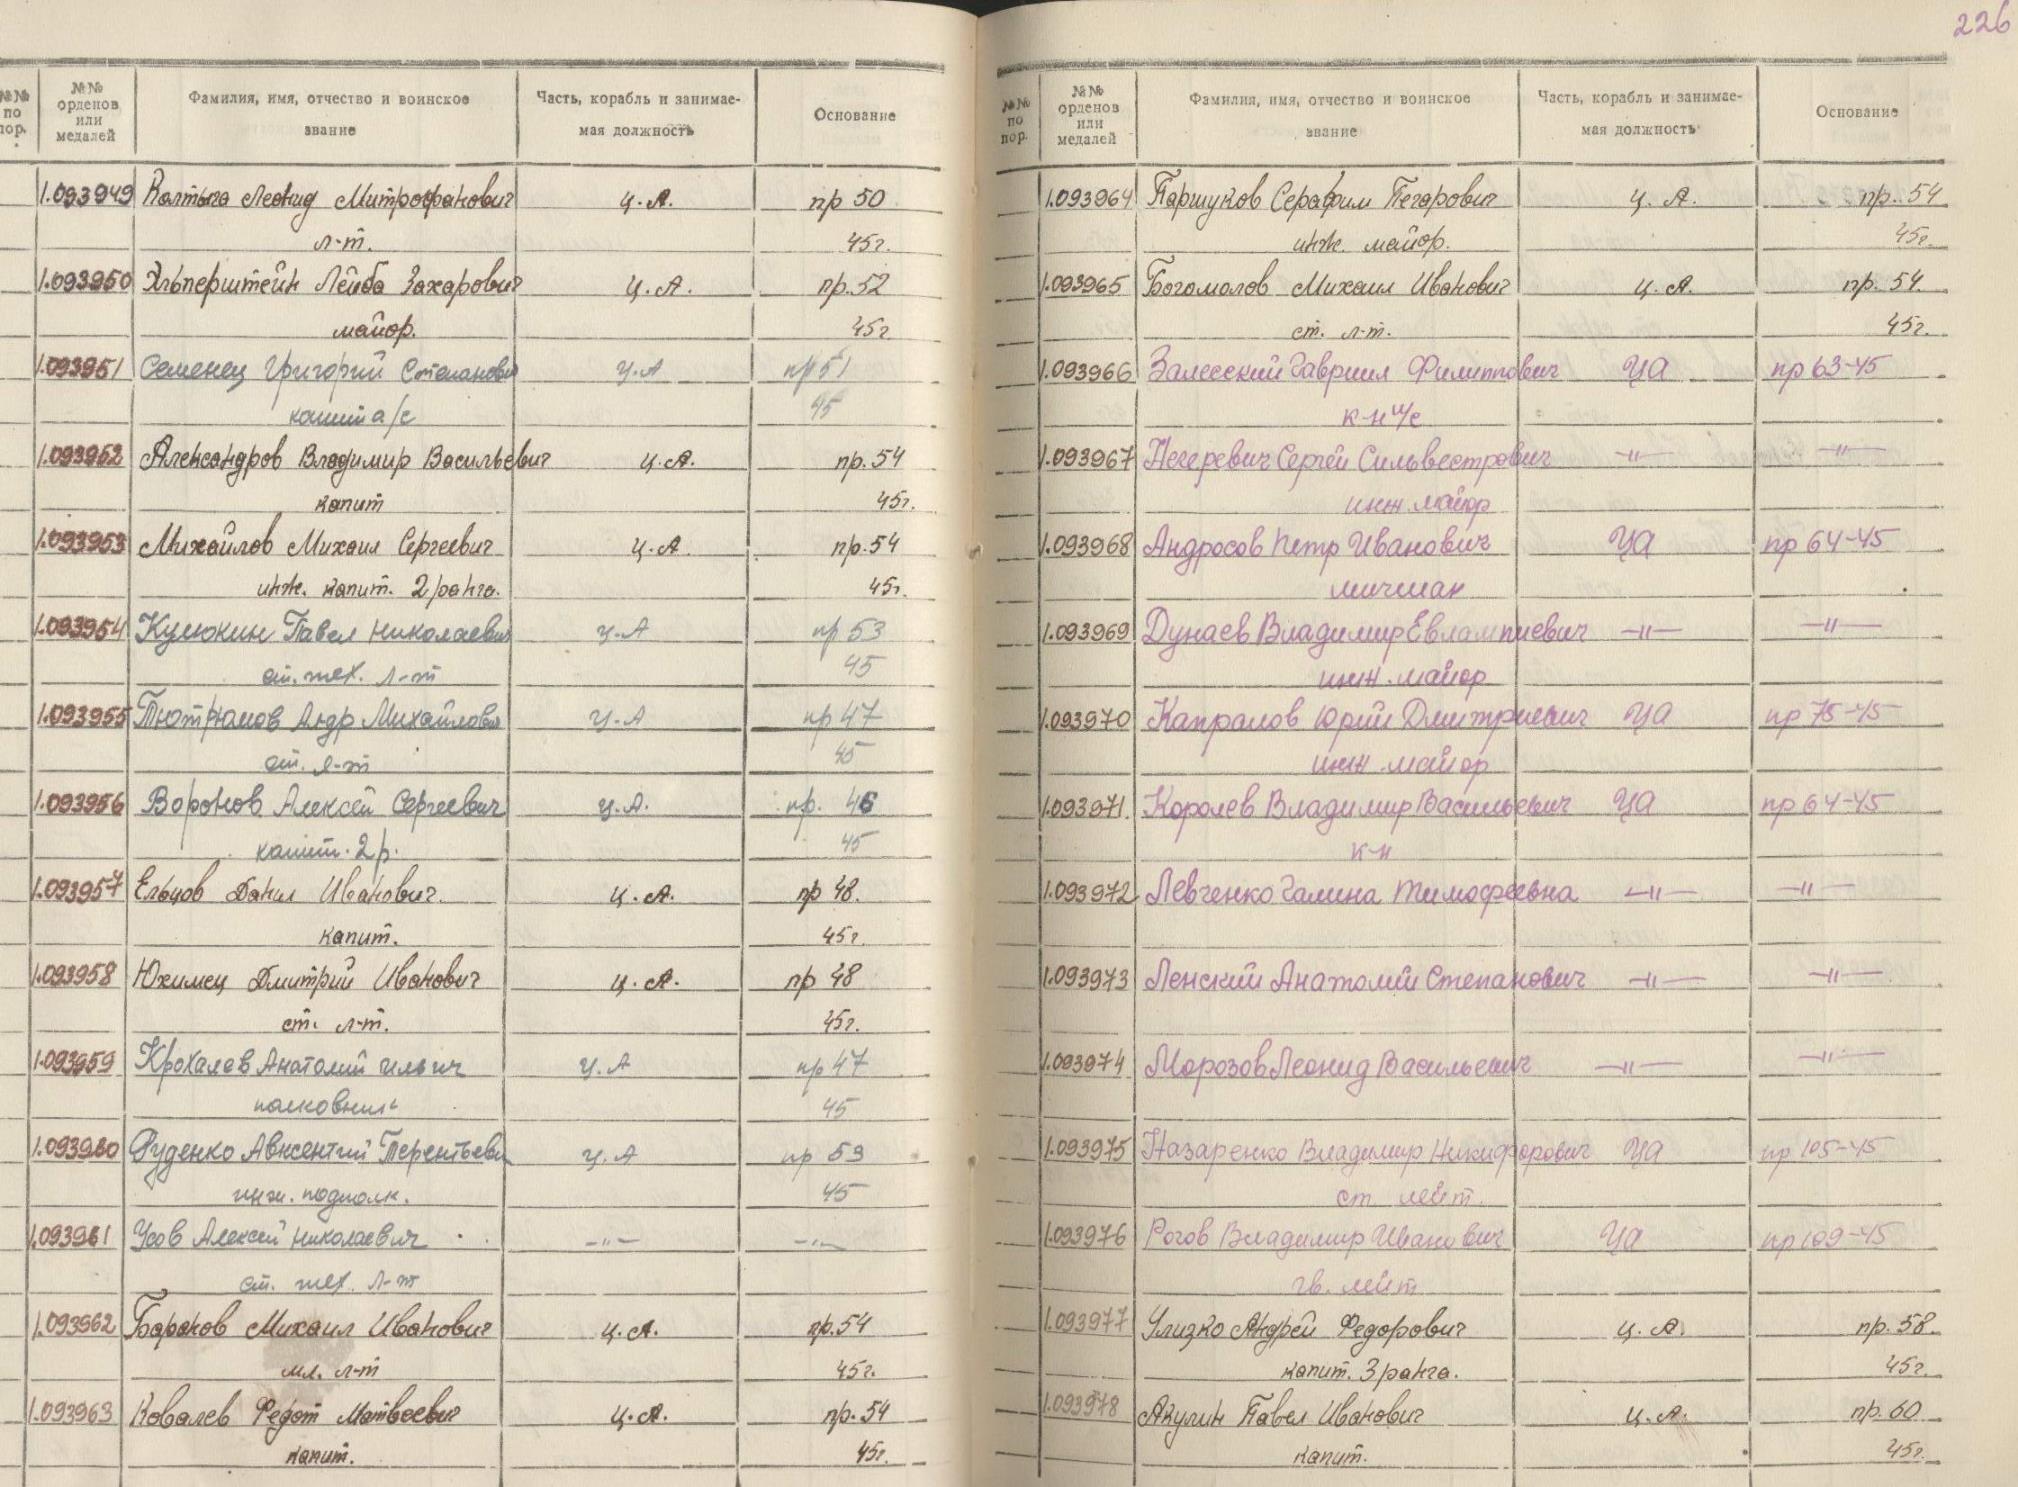 226
№№ по пор.
№№ орденов или медалей
Фамилия, имя, отчество и воинское звание
Часть, корабль и занимаемая должность
Основание
1.093949 Калтыга Леонид Митрофанович ц.А. пр 50
л-т. 45г.
1.093950 Хльперштейн Лейба Захарович ц.А. пр.52
майор. 45г
1.093951 Семенец Григорий Степанович ц.А пр 51
капит а/с 45
1.093952 Александров Владимир Васильевич ц.А. пр.54
капит 45г.
1.093953 Михайлов Михаил Сергеевич ц.А пр.54
инж. капит. 2 ранга. 45г.
1.093954 Павел Николаевич ц.А пр 53
ст. тех. л-т 45
1.093955 Андр Михайлович ц.А пр 47
ст. л-т 45
1.093956 Воронов Алексей Сергеевич ц.А. пр. 46
капит. 2 р. 45
1.093957 Ельцов Данил Иванович. ц.А. пр 48.
капит. 45г.
1.093958 Юхимец Дмитрий Иванович ц.А. пр 48
ст. л-т. 45г.
1.093959 Крохалев Анатолий Ильич ц.А пр 47
полковник 45
1.093960 Руденко Авксентий Терентьеви ц.А пр 53
инж. подполк. 45
1.093961 Усов Алексей Николаевич -"- -"-
ст. тех. л-т
1.093962 Баранов Михаил Иванович ц.А. пр.54
мл. л-т 45г.
1.093963 Ковалев Федот Матвеевич ц.А. пр.54
капит. 45г.
№№ по пор.
№№ орденов или медалей
Фамилия, имя, отчество и воинское звание
Часть, корабль и занимаемая должность
Основание
1.093964 Паршуков Серафим Егорович ц.А. пр. 54
инж. майор. 45г.
1.093965 Богомолов Михаил Иванович ц.А. пр. 54.
ст. л-т. 45г.
1.093966 Залесский Гавриил Филиппович ЦА пр 63-45
к-н и/с
1.093967 Сергей Сильвестрович -"- -"-
инж. майор
1.093968 Андросов Петр Иванович ЦА пр 64-45
мичман
1.093969 Дунаев Владимир Евлампиевич -"- -"-
инж. майор
1.093970 Капралов Юрий Дмитриевич ЦА пр 75-45
инж. майор
1.093971. Королев Владимир Васильевич ЦА пр 64-45
к-н
1.093972 Левченко Галина Тимофеевна -"- -"-
1.093973 Ленский Анатолий Степанович -"- -"-
1.093974 Морозов Леонид Васильевич -"- -"-
1.093975 Назаренко Владимир Никифорович ЦА пр 105-45
ст. лейт.
1.093976 Рогов Владимир Иванович ЦА пр 109-45
гв. лейт
1.093977 Улизко Андрей Федорович ц.А. пр. 58.
капит. 3 ранга. 45г.
1.093978 Акулин Павел Иванович ц.А. пр. 60
капит. 45г.